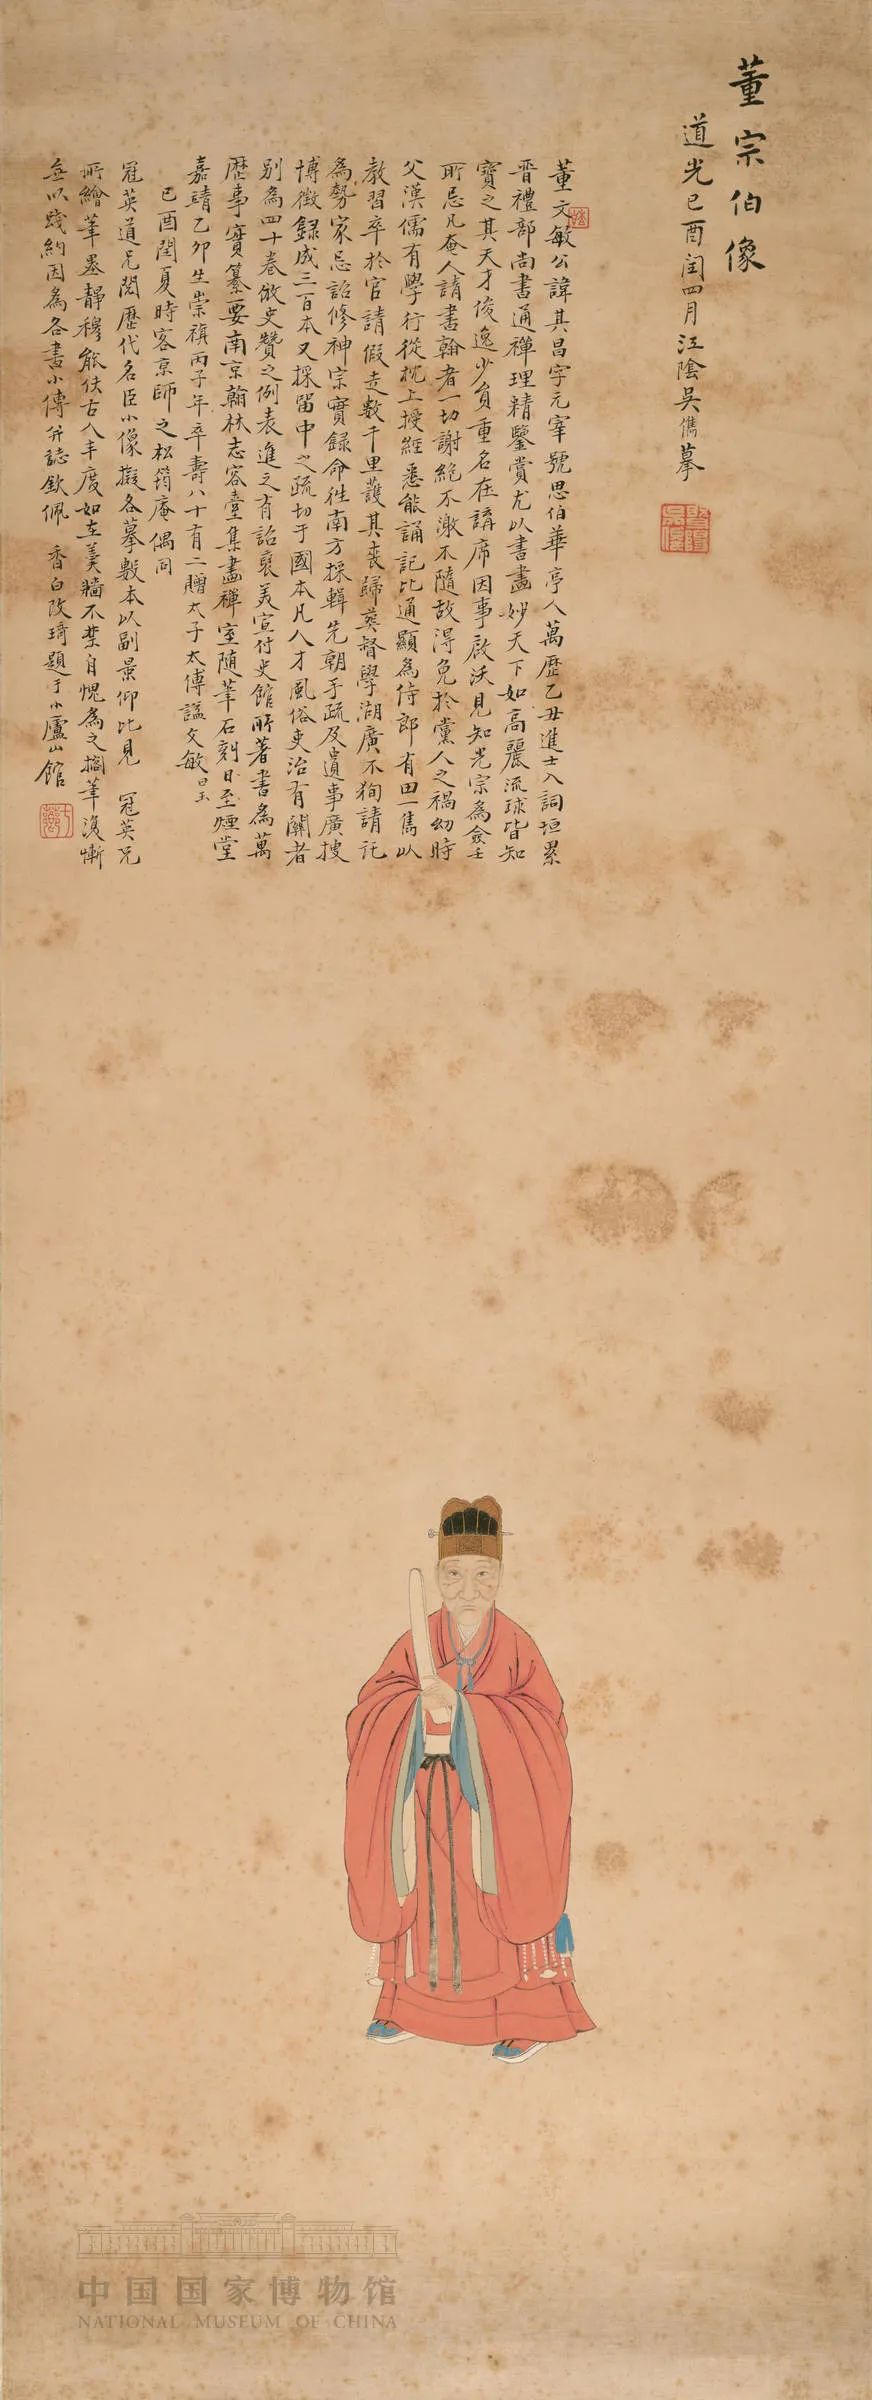 董宗伯像
道光己酉闰四月江陰吳儁摹
董文敏公諱其昌字元宰號思伯華亭人萬歷乙丑進士入詞垣累
晉禮部尚書通禪理精鑒賞尤以書畫妙天下如高麗流球皆知
寶之其天才俊逸少負重名在講席因事啟沃見知光宗為僉壬
所忌凡奄人請書翰者一切謝絕不激不隨故得免於黨人之禍幼時
父漢儒有學行從枕上授經悉能誦記比通顯為侍郎有田一雋以
教習卒於官請假走數千里護其喪歸葬督學湖廣不狥請託
為勢家忌詔修神宗實錄命往南方採輯先朝手疏及遺事廣搜
博徵錄成三百本又採留中之疏切于國本凡人才風俗吏治有關者
別為四十卷倣史贊之例表進之有詔襃美宣付史館所著書為萬
歷事實纂要南京翰林志容臺集畫禪室隨筆石刻日至煙堂
嘉靖乙卯生崇禎丙子年卒壽八十有二贈太子太傅謚文敏
己酉閏夏時客京師之松筠庵偶同
冠英道兄閱歷代名臣小像擬各摹數本以副景仰比見 冠英兄
所繪筆墨靜穆能伏古人丰度如在羹牆不禁自愧為之擱筆復慚
無以踐約因為各書小傳并誌欽佩 香白改琦題于小廬山館
中国国家博物馆
NATIONAL MUSEUM OF CHINA